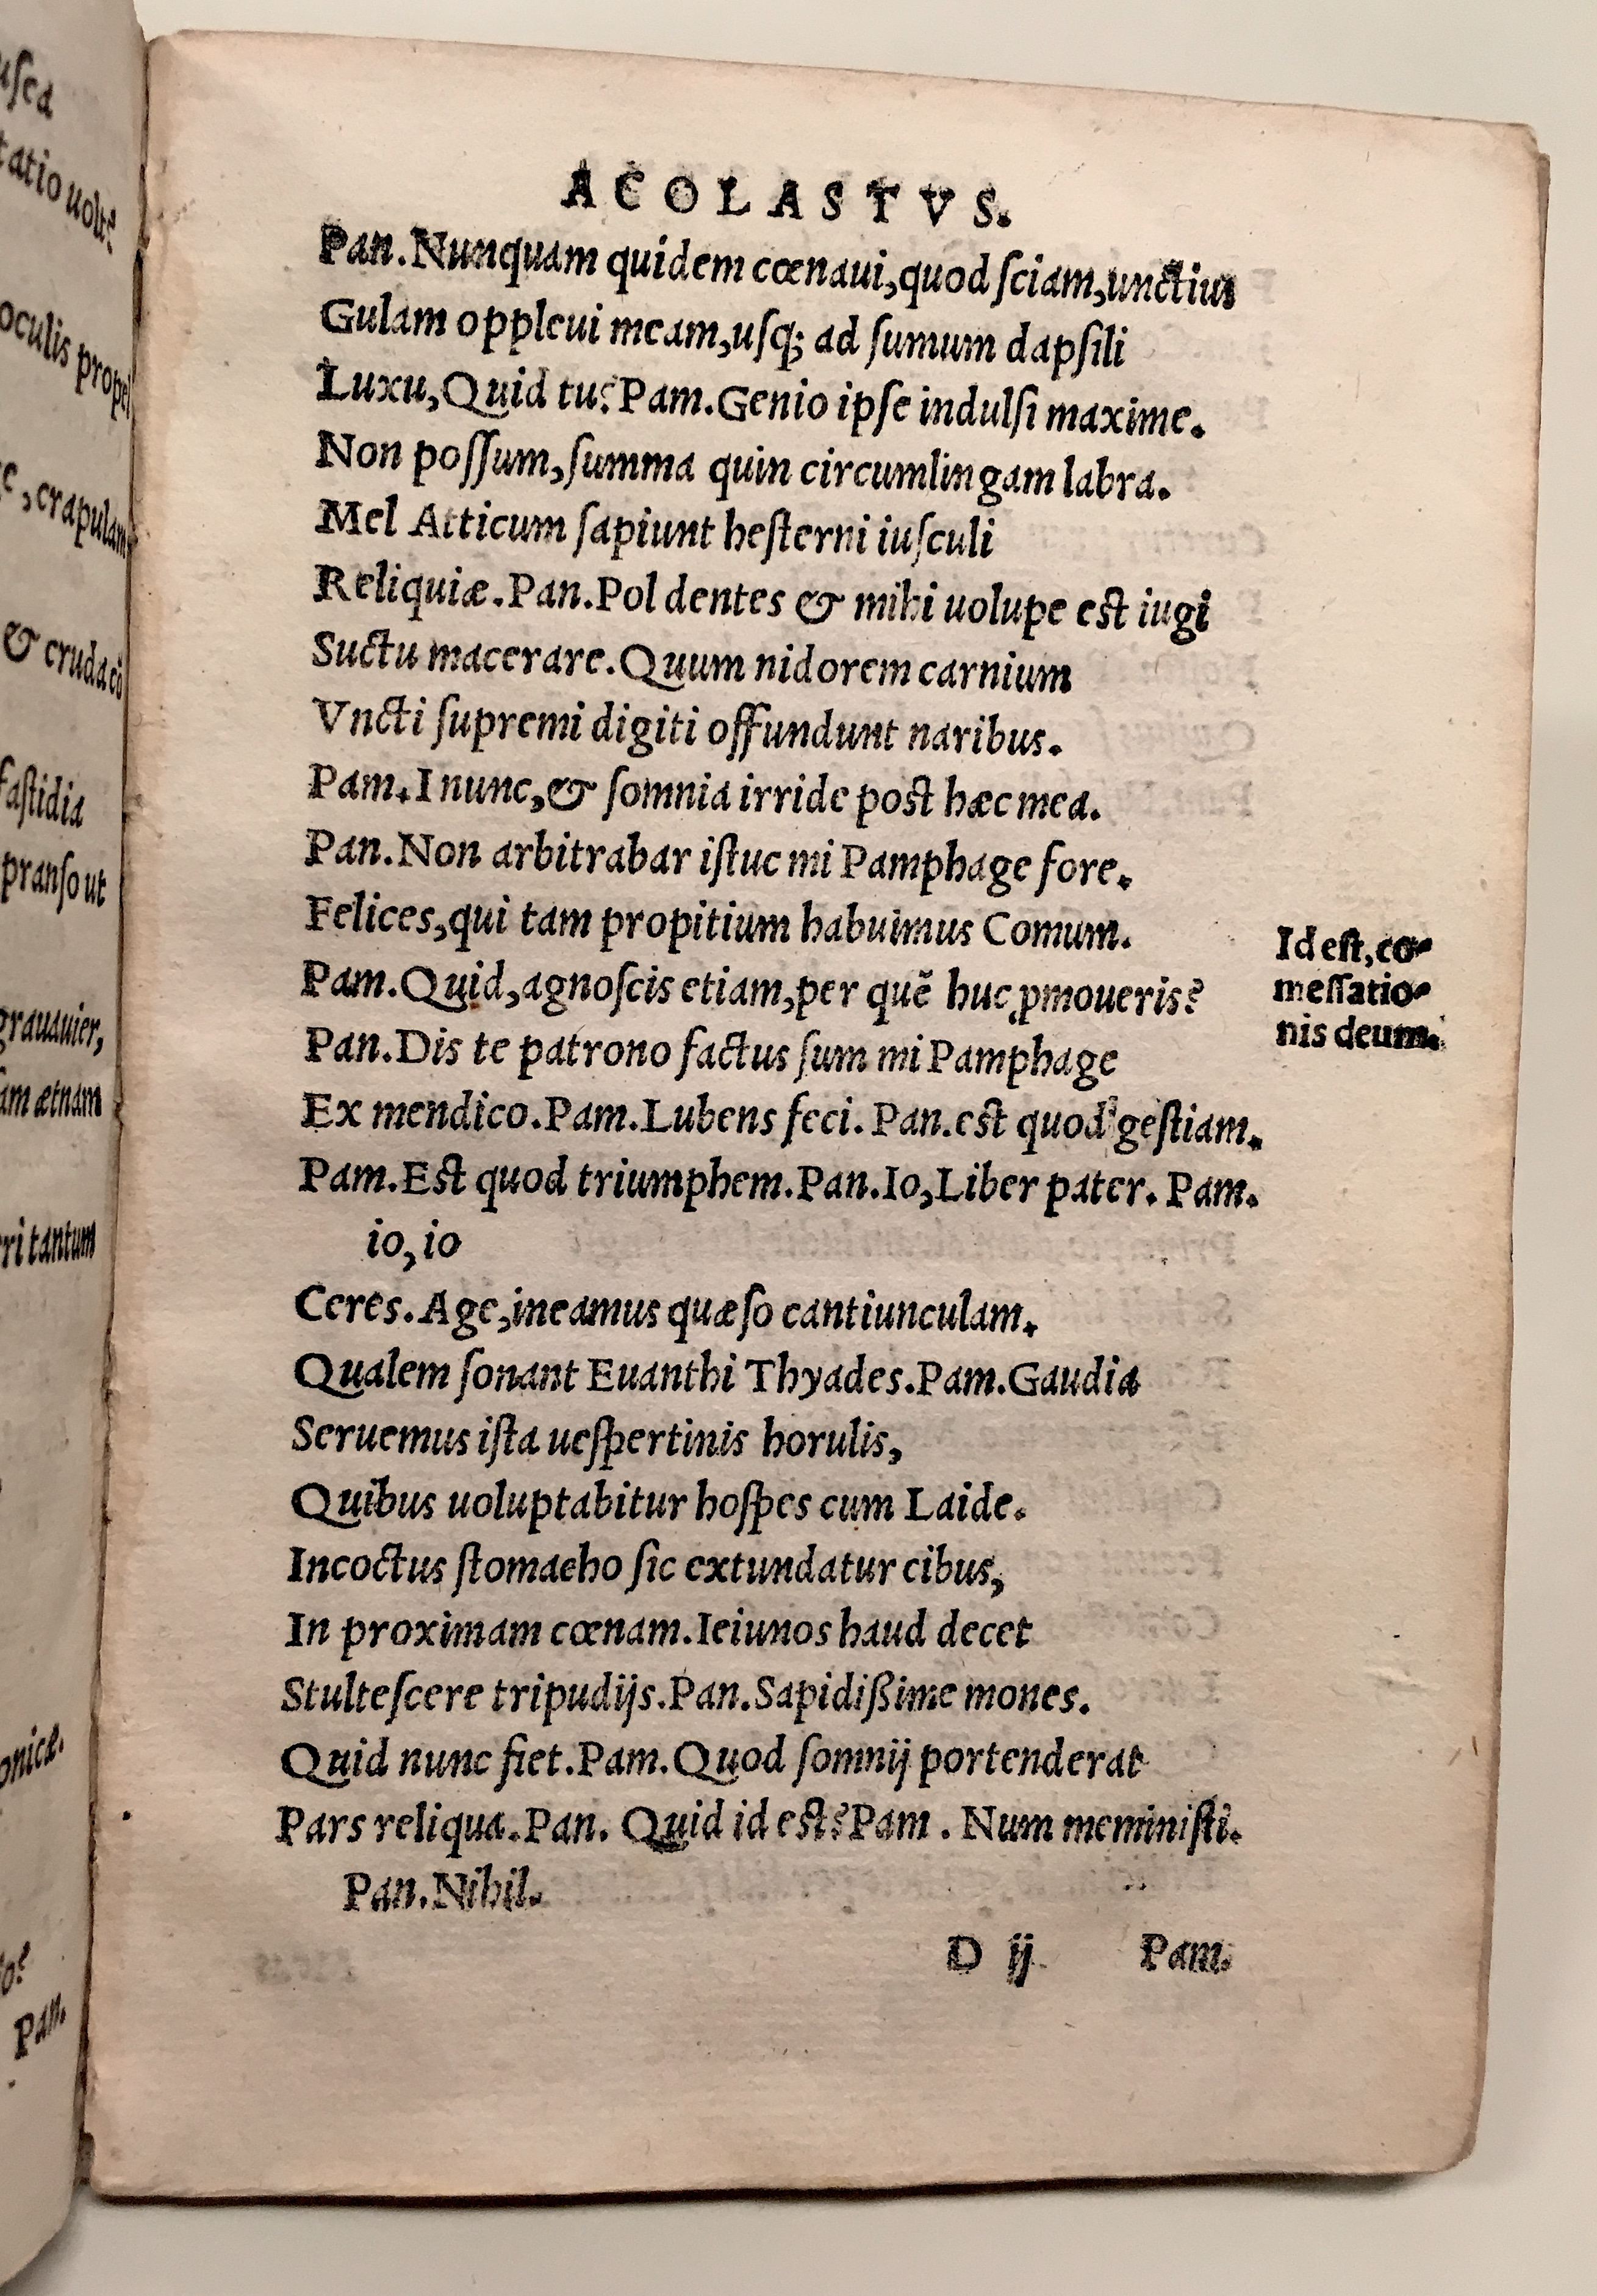 uſea
tatio uolt?
oculis propel
c, crapulam
& cruda cō
faſtidia
pranſo ut
grauauier,
am ætnam
ri tantum
onicæ.
to?
Pan.
ACOLASTVS.
Pan. Nunquam quidem cœnaui, quod ſciam, unctius
Gulam oppleui meam, uſq; ad ſumum dapſili
Luxu, Quid tu? Pam. Genio ipſe indulſi maxime.
Non poſſum, ſumma quin circumlingam labra.
Mel Atticum ſapiunt heſterni iuſculi
Reliquiæ. Pan. Pol dentes & mihi uolupe eſt iugi
Suctu macerare. Quum nidorem carnium
Vncti ſupremi digiti offundunt naribus.
Pam. I nunc, & ſomnia irride poſt hæc mea.
Pan. Non arbitrabar iſtuc mi Pamphage fore.
Felices, qui tam propitium habuimus Comum.
Id eſt, co-
meſſatio-
nis deum.
Pam. Quid, agnoſcis etiam, per quẽ huc ꝓmoueris?
Pan. Dis te patrono factus ſum mi Pamphage
Ex mendico. Pam. Lubens feci. Pan. eſt quod geſtiam.
Pam. Eſt quod triumphem. Pan. Io, Liber pater. Pam.
io, io
Ceres. Age, ineamus quæſo cantiunculam.
Qualem ſonant Euanthi Thyades. Pam. Gaudia
Seruemus iſta ueſpertinis horulis,
Quibus uoluptabitur hoſpes cum Laide.
Incoctus ſtomaeho ſic extundatur cibus,
In proximam cœnam. Ieiunos haud decet
Stulteſcere tripudijs. Pan. Sapidißime mones.
Quid nunc fiet. Pam. Quod ſomnij portenderat
Pars reliqua. Pan. Quid id eſt? Pam. Num meminiſti.
Pan. Nihil.
D ij Pam.